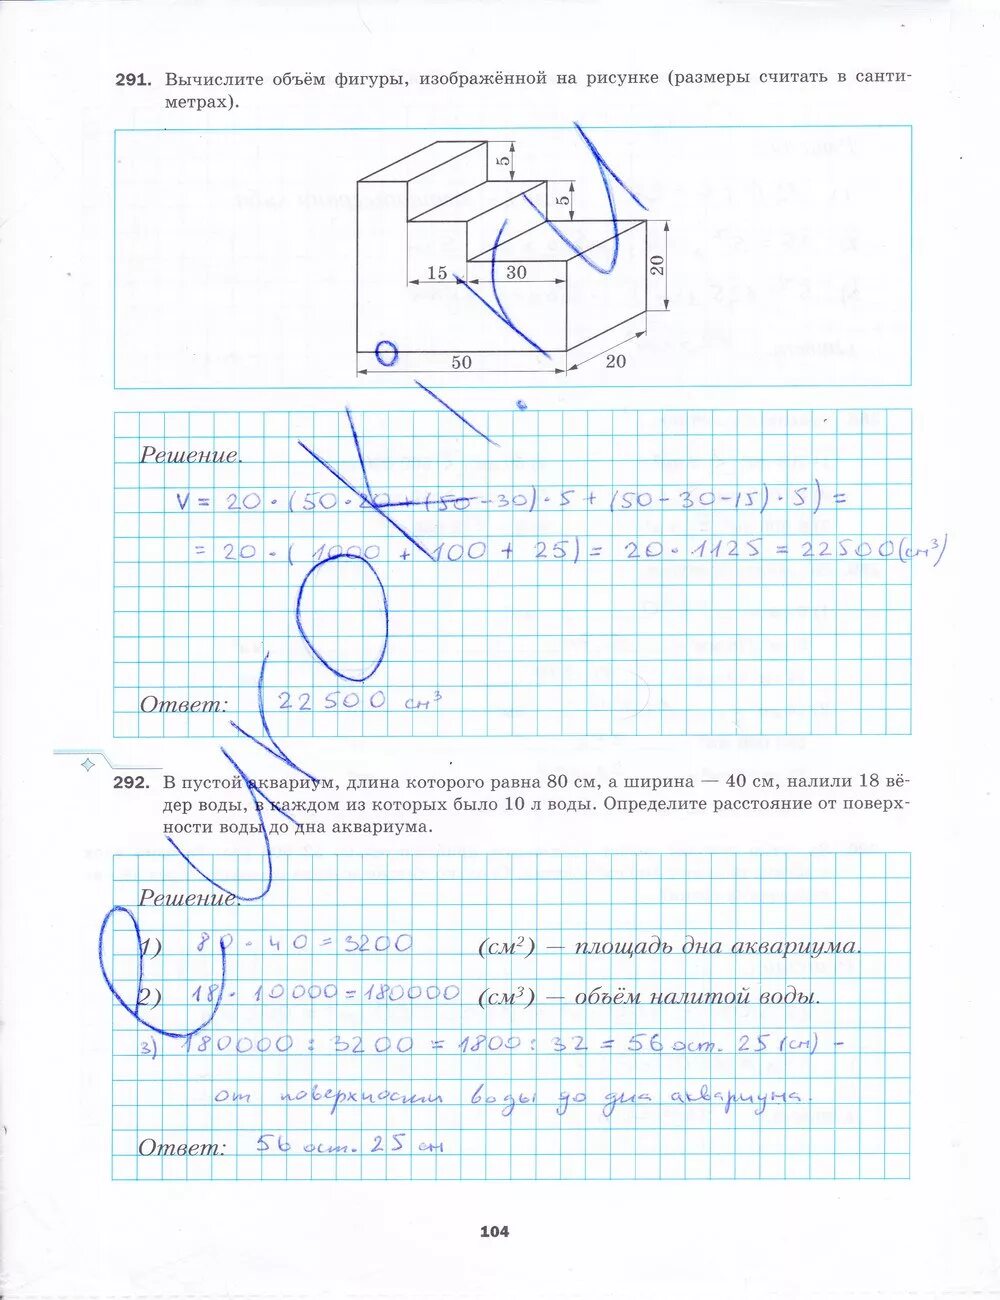 291. Вычислите объём фигуры, изображённой на рисунке (размеры считать в санти-
метрах).
5
5
15
30
20
50
20
Решение.
V = 20 · (50 · 20 + (50 - 30) · 5 + (50 - 30 - 15) · 5) =
= 20 · (1000 + 100 + 25) = 20 · 1125 = 22500 (см³)
Ответ: 22500 см³
292. В пустой аквариум, длина которого равна 80 см, а ширина — 40 см, налили 18 вё-
дер воды, в каждом из которых было 10 л воды. Определите расстояние от поверх-
ности воды до дна аквариума.
Решение.
1) 80 · 40 = 3200 (см²) — площадь дна аквариума.
2) 18 · 10000 = 180000 (см³) — объём налитой воды.
3) 180000 : 3200 = 1800 : 32 = 56 ост. 25 (см) -
от поверхности воды до дна аквариума.
Ответ: 56 ост. 25 см
104